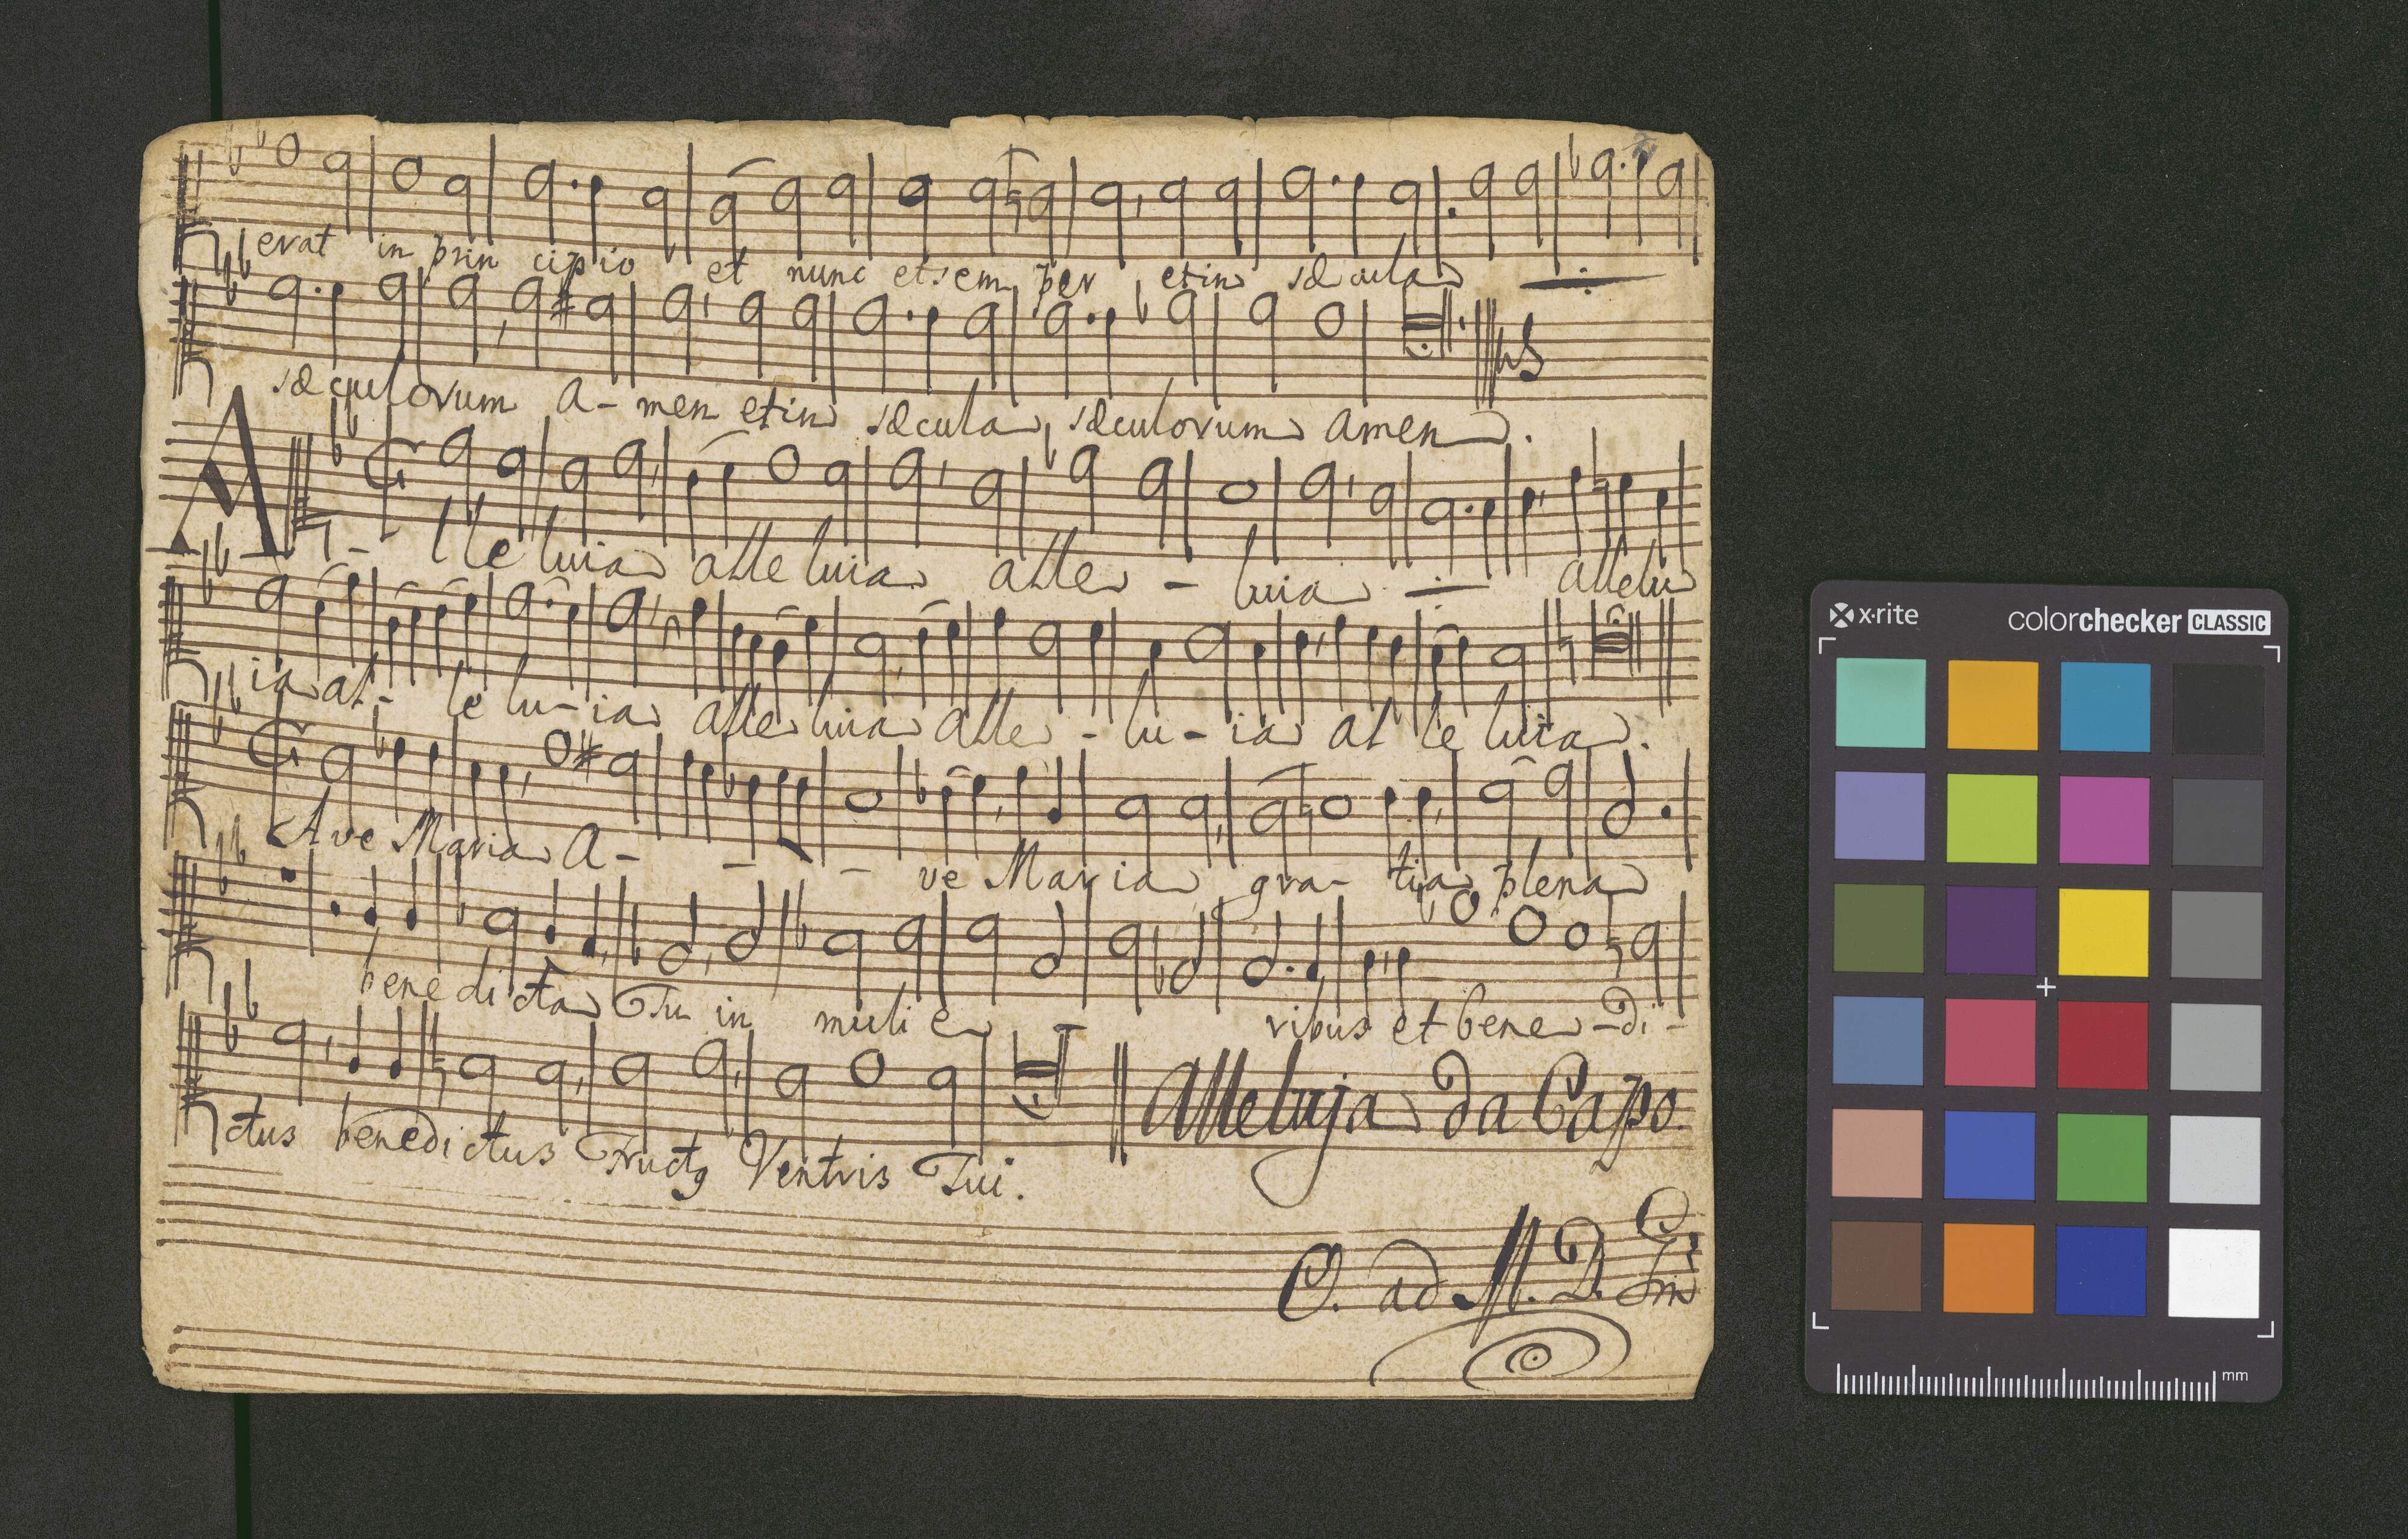 erat in prin cipio et nunc et sem per et in sæ cula
sæculorum A- men et in sæcula sæculorum amen.
Alleluia alleluia alle - luia allelu
ia al- le lu-ia alleluia alle - lu - ia al le luia.
Ave Maria A - - - ve Maria gra- tia plena
benedicta Tu in muli e ribus et bene - di -
ctus benedictus Fructꝯ Ventris Tui. Alleluja da Capo
O. ad M. D. G.
x-rite colorchecker CLASSIC
mm